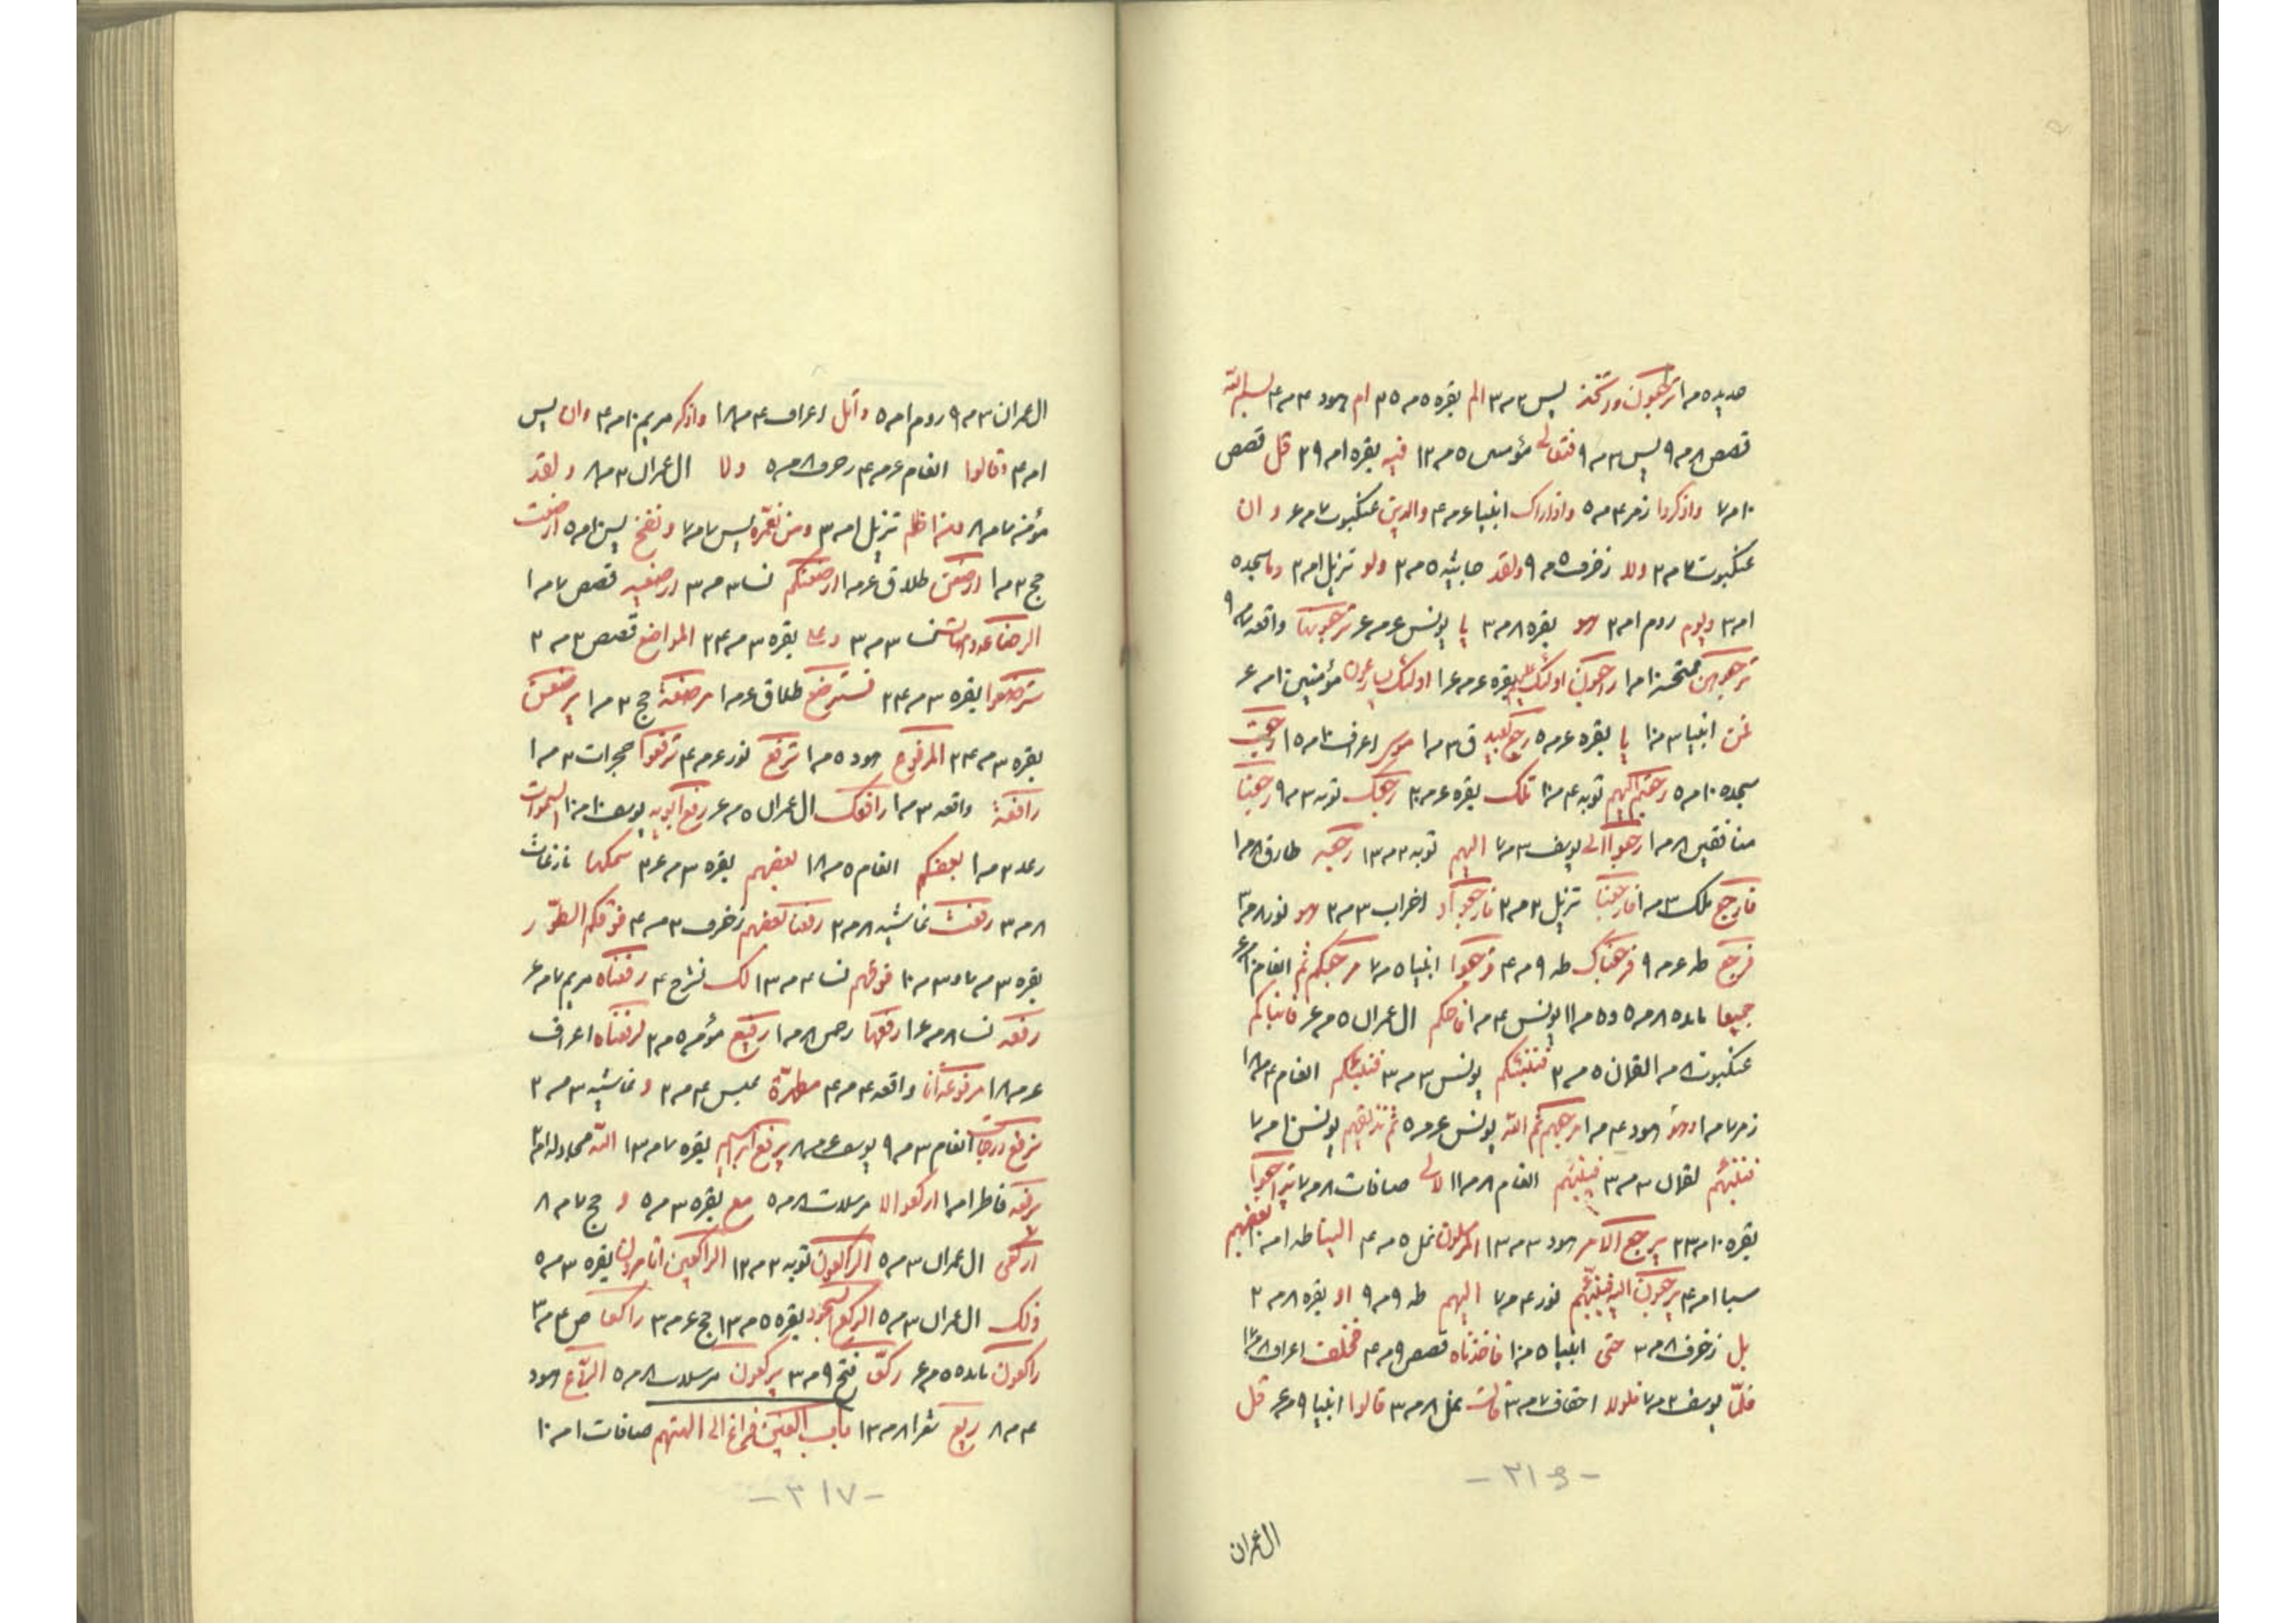 حدیده مرا ترجعون وءاتخذ یس ۲مر۳ الم بقره ۵مر۳۵ ام هود ۳مر۴
قصص ۸مر۹ یس ۳مر۹ فتعالی مؤمن ۵مر۱۲ فیه بقره ۱مر۳۹ قل قصص
۱۰مر۷ واذکروا زمر ۴مر۵ واذاراک انبیا ۴مر۴ والذین عنکبوت ۷مر۶ وان
عنکبوت ۲مر۲ ولا زخرف ۵مر۹ ولقد جاثیه ۵مر۲ ولو تنزیل ۱مر۲ وما سجده ۵
۱مر۳ ویوم روم ۱مر۲ هو بقره ۸مر۳ یا یونس ۶مر۶ ترجعونها واقعه ۷مر۹
ترجعوهن ممتحنه ۱۰مرا راجعون اولئک علیهم بقره ۶مر۱۶ اولئک یسارعون مؤمنین ۱۰مر۶
فمن انبیا ۳مر۱۰ یا بقره ۶مر۵ رجع بعید ق ۳مرا موسی اعراف ۱۰مر۱۵ رجعت
سجده ۱۰مر۵ رجعتم الیهم توبه ۴مر۱۰ تلک بقره ۶مر۲۰ رجعک توبه ۳مر۹ رجعنا
منافقین ۸مرا رجعوا الی یوسف ۳مر۷ الیهم توبه ۲مر۱۳ رجعه طارق ۸مرا
فارجع ملک ۳مرا فارجعنا تنزیل ۲مر۲ فارجعوا او احزاب ۳مر۲ هو نور ۸مر۳
فرجع طه ۶مر۹ فرجعناک طه ۹مر۴ فرجعوا انبیا ۵مر۷ مرجعکم ثم انعام
جمیعا مائده ۸مر۵ و ۵مر۱۱ یونس ۴مرا فاحکم ال عمران ۵مر۶ فانبئکم
عنکبوت ۸مرا لقمان ۵مر۲ فننبئکم یونس ۳مر۳ فینبئکم انعام ۴مر۱۸
زمر ۷مرا وهو هود ۴مرا مرجعهم ثم الله یونس ۶مر۵ ثم نذیقهم یونس ۱۰مر۷
فننبئهم لقمان ۳مر۳ فینبئهم انعام ۸مر۱۱ لالی صافات ۸مر۷ یتراجعوا
بقره ۱۰مر۲۳ یرجع الامر هود ۳مر۱۳ المرسلون نمل ۵مر۴ الینا طه ۱مر۱۰ بعضهم
سبا ۱مر۴ یرجعون الیه فینبئهم نور ۴مر۷ الیهم طه ۹مر۹ او بقره ۸مر۲
بل زخرف ۸مر۳ حتی انبیا ۵مر۱۰ فاخذناه قصص ۹مر۴ فخلف اعراف
فلما یوسف ۲مر۷ فلولا احقاف ۷مر۳ قالت نمل ۸مر۳ قالوا انبیا ۹مر۶ قل
-۳۱۶-
ال عمران
ال عمران ۳مر۹ روم ۱مر۵ واتل اعراف ۴مر۱۸ واذکر مریم ۱۰مر۴ وان یس
۱مر۴ وقالوا انعام ۶مر۴ زخرف ۸مر۵ ولا ال عمران ۳مر۸ ولقد
مؤمنه ۷مر۸ ومن اظلم تنزیل ۱مر۳ ومن نعمره یس ۷مر۷ ونفخ یس ۱۰مر۵ ارضعت
حج ۳مرا ارضعن طلاق ۶مرا ارضعنکم نسا ۳مر۳ ارضعیه قصص ۷مرا
الرضاعه وامهات نسا ۳مر۳ وعلی بقره ۳مر۲۴ المراضع قصص ۳مر۲
تسترضعوا بقره ۳مر۲۴ فسترضع طلاق ۶مرا مرضعة حج ۳مرا یرضعن
بقره ۳مر۲۴ المرفوع هود ۵مرا ترفع نور ۶مر۴ ترفعوا حجرات ۳مرا
رافعة واقعه ۳مرا رافعک ال عمران ۵مر۶ رفع ابویه یوسف ۱۰مر۱۰ السموات
رعد ۳مرا بعضکم انعام ۵مر۱۸ بعضهم بقره ۳مر۲۶ سمکها نازعات
۸مر۳ رفعت غاشیه ۸مر۲ رفعنا بعضهم زخرف ۳مر۴ فوقکم الطور
بقره ۳مر۷ و ۳مر۱۰ فوقهم نسا ۴مر۱۳ لک نشرح ۴ رفعناه مریم ۷مر۶
رفعه نسا ۸مر۱۶ رفعها رحمن ۸مرا رفیع مؤمن ۵مر۲ لرفعناه اعراف
۶مر۱۸ مرفوعة انا واقعه ۴مر۴ مطهرة عبس ۴مر۲ و غاشیه ۳مر۲
نرفع درجات انعام ۳مر۹ یوسف ۶مر۸ یرفع ابراهیم بقره ۷مر۱۳ الله مجادله ۱مر۲
یرفعه فاطر ۱مرا ارکعوا لا مرسلات ۸مر۵ مع بقره ۳مر۵ و حج ۷مر۸
ارکعی ال عمران ۳مر۵ الراکعون توبه ۲مر۱۲ الراکعین اتامرون بقره ۳مر۵
ذلک ال عمران ۳مر۵ الرکع السجود بقره ۵مر۱۳ حج ۶مر۳ راکعا ص ۴مر۳
راکعون مائده ۵مر۶ رکعا فتح ۹مر۳ یرکعون مرسلات ۸مر۵ الروع هود
۴مر۸ ریع شعرا ۸مر۱۳ باب الغین فراغ الی الهتهم صافات ۱مر۱۰
-۳۱۷-